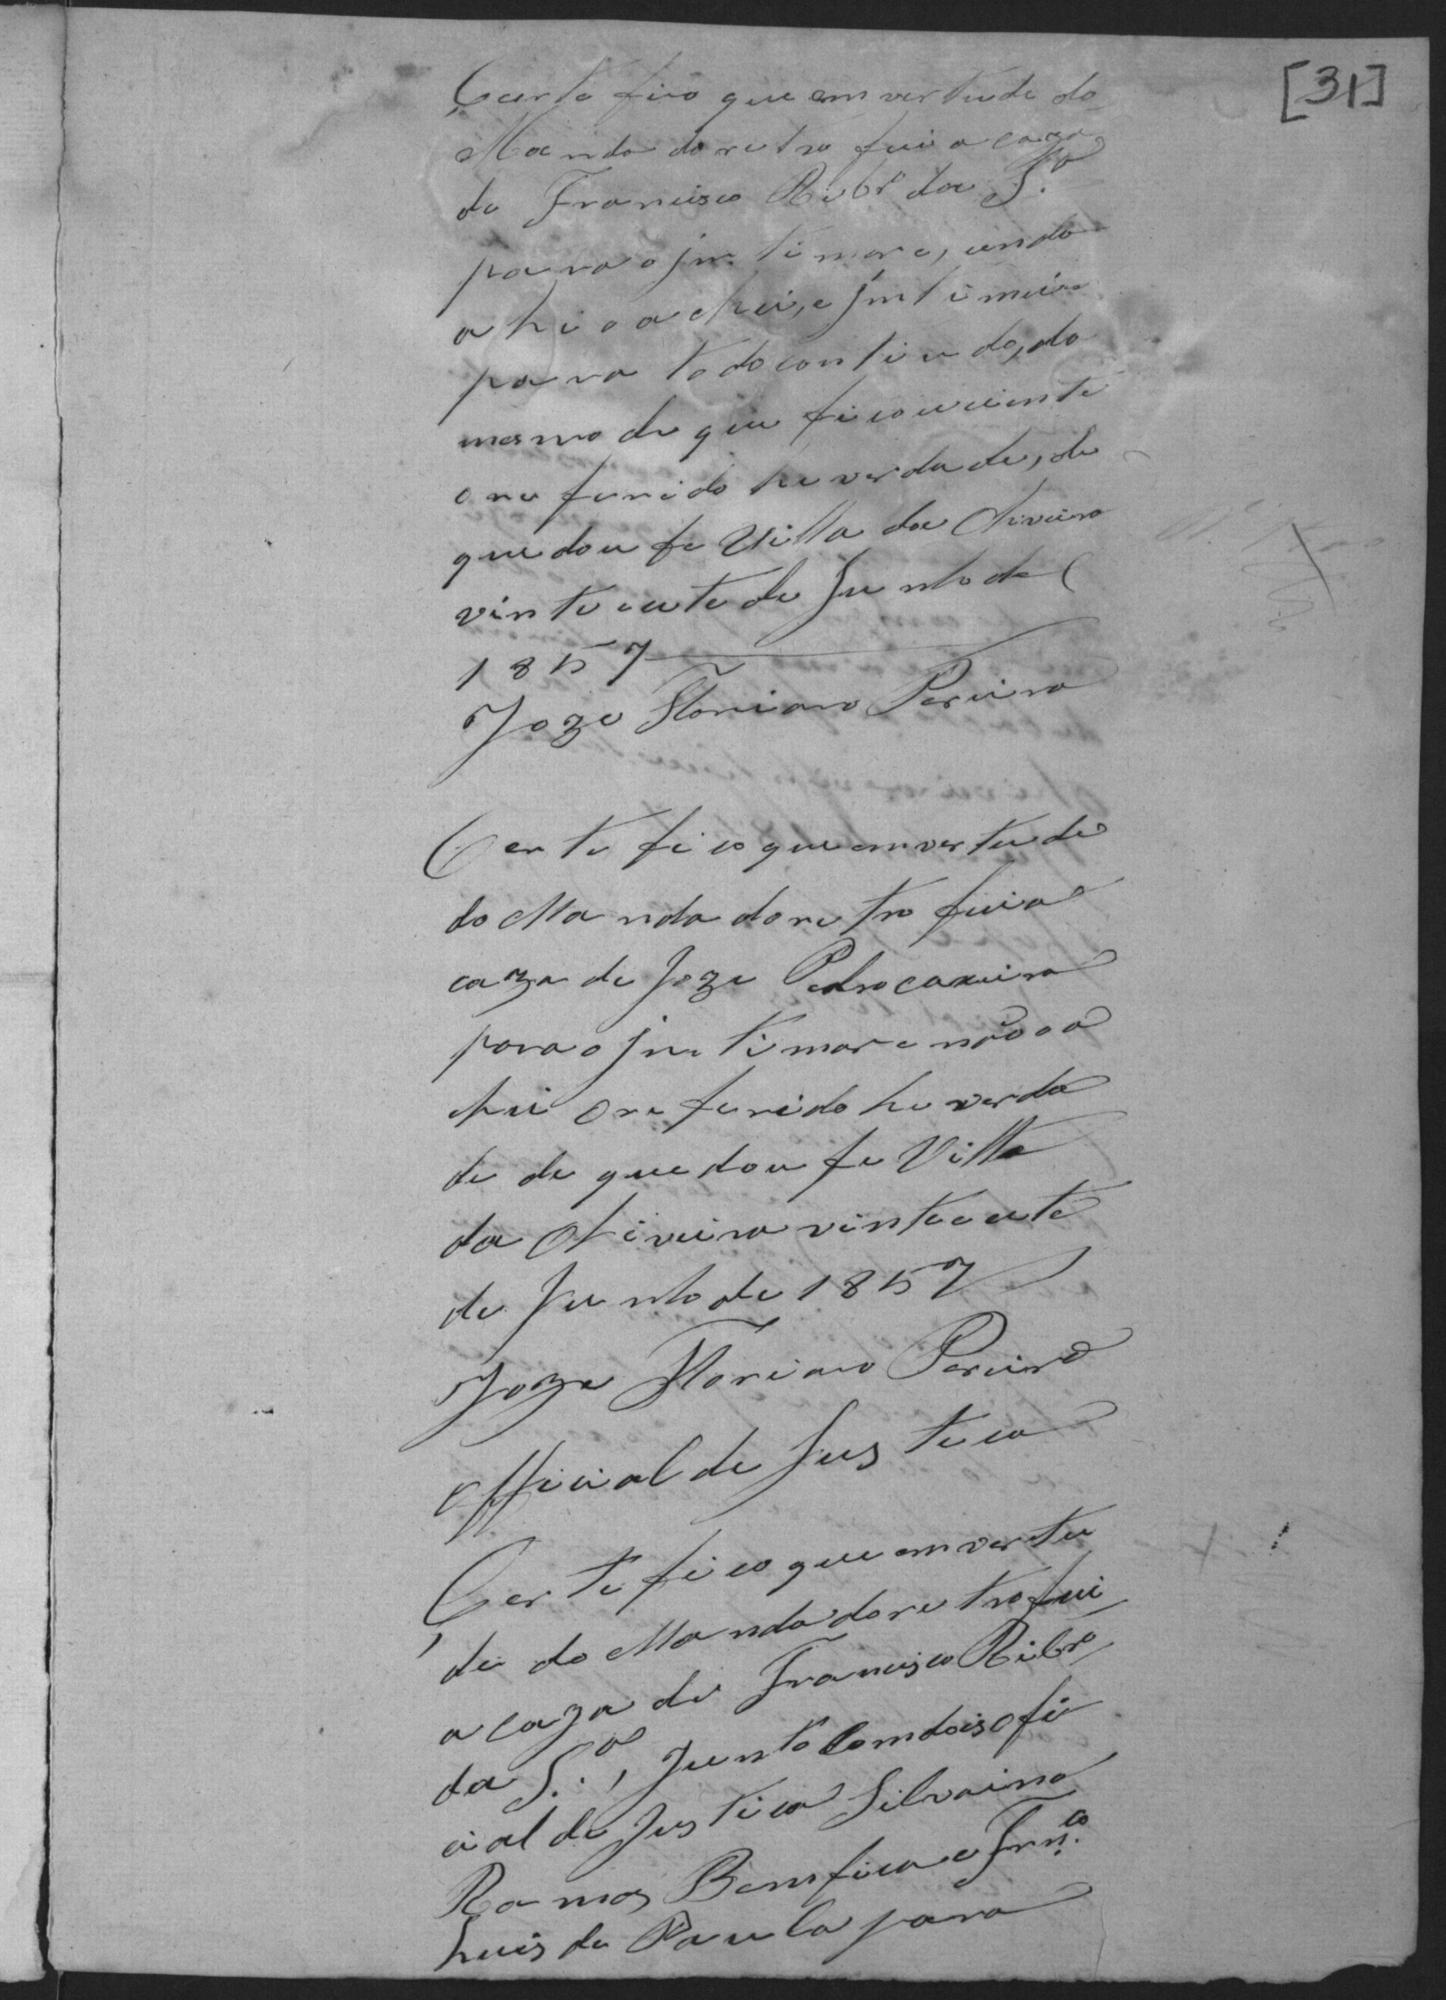 [31]
Certefico que em vertude do
Mandado retro fui a caza
de Francisco Ribr.º da S.ª
para o jntimar e, cendo
ahi o achei, e jntimei
para todo contiudo, do
mesmo de que ficou ciente
o referido he verdade, de
que dou fe Villa da Oliveira
vinte cete de Junho de
1857
Joze Floriano Pereira
Certefico que em vertude
do Mandado retro fui a
caza de Joze Pedro caxeiro
para o jntimar e não o a
chei o referido he verda
de de que dou fe Villa
da Oliveira vinte cete
de Junho de 1857
Joze Floriano Pereira
Official de Justica
Certefico que em vertu
de do Mandado retro fui
a caza de Francisco Ribr.º
da S.ª, Junto Com dois ofi
cial de Justica Silvaino
Ramos Bemfica e Frn.co
Luis de Paula para